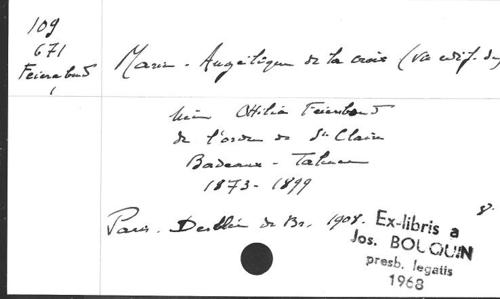 109
671
Feierabend
Marie-Angélique de la croix (vie édif. du
Mère Ottilie Feierabend
de l'ordre de Ste Claire
1873-1899
Paris. Desclée de Br. 1908. 8.
Ex-libris a
Jos. BOUQUIN
presb. legatis
1968